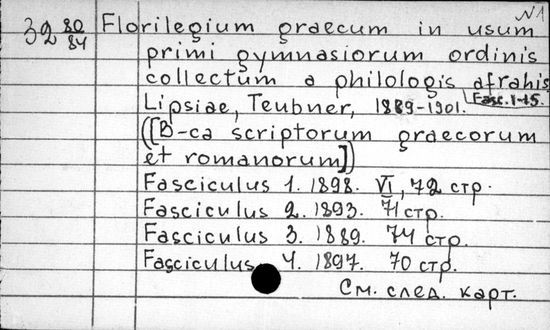 №1
32 80/84 Florilegium graecum in usum
primi gymnasiorum ordinis
collectum a philologis afrahis
Fasc. 1-15.
Lipsiae, Teubner, 1889-1901.
([B-ca scriptorum graecorum
et romanorum])
Fasciculus 1. 1898. VI, 72 стр.
Fasciculus 2. 1893. 71 стр.
Fasciculus 3. 1889. 74 стр.
Fasciculus 4. 1897. 70 стр.
См. след. карт.